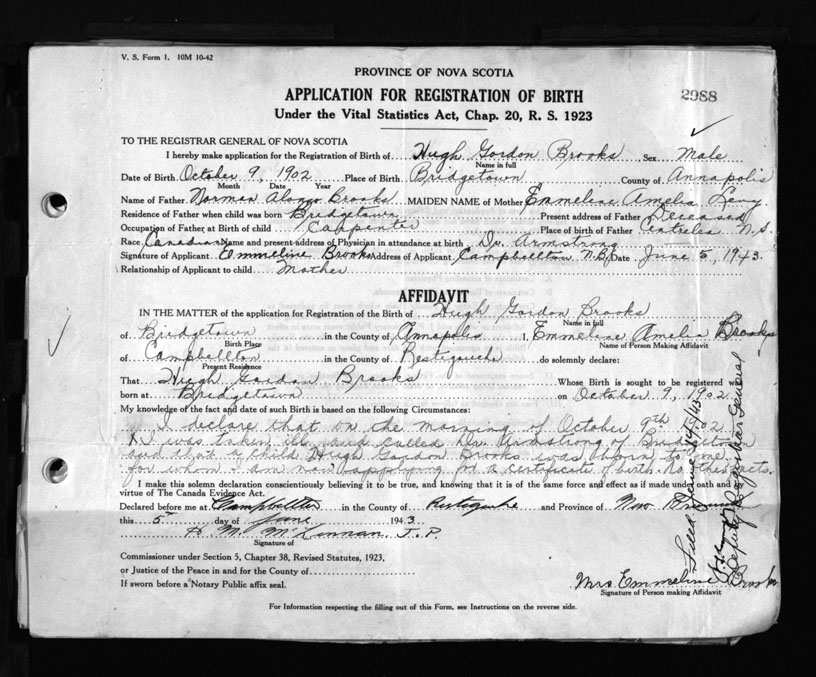 V. S. Form 1. 10M 10-42
PROVINCE OF NOVA SCOTIA
APPLICATION FOR REGISTRATION OF BIRTH
2988
Under the Vital Statistics Act, Chap. 20, R. S. 1923
TO THE REGISTRAR GENERAL OF NOVA SCOTIA
I hereby make application for the Registration of Birth of Hugh Gordon Brooks Sex Male
Name in full
Date of Birth October 9, 1902 Place of Birth Bridgetown County of Annapolis
Month Date Year
Name of Father Norman Alonzo Brooks MAIDEN NAME of Mother Emmeline Amelia
Residence of Father when child was born Bridgetown Present address of Father Deceased
Occupation of Father at Birth of child Carpenter Place of birth of Father Centrelea N.S.
Race Canadian Name and present address of Physician in attendance at birth Dr. Armstrong
Signature of Applicant Emmeline Brooks Address of Applicant Campbellton N.B. Date June 5, 1943.
Relationship of Applicant to child Mother
AFFIDAVIT
IN THE MATTER of the application for Registration of the Birth of Hugh Gordon Brooks
Name in full
of Bridgetown in the County of Annapolis I, Emmeline Amelia Brooks
Birth Place Name of Person Making Affidavit
of Campbellton in the County of Restigouche do solemnly declare:
Present Residence
That Hugh Gordon Brooks Whose Birth is sought to be registered was
born at Bridgetown on October 9, 1902
My knowledge of the fact and date of such Birth is based on the following Circumstances:
I declare that on the morning of October 9th 1902
I was taken ill and called Dr. Armstrong of Bridgetown
and that a child Hugh Gordon Brooks was born to me
for whom I am now applying for a certificate of birth. No other facts.
I make this solemn declaration conscientiously believing it to be true, and knowing that it is of the same force and effect as if made under oath and by
virtue of The Canada Evidence Act.
Declared before me at Campbellton in the County of Restigouche and Province of New Brunswick
this 5th day of June 1943
H. M. McLennan J. P.
Signature of
Commissioner under Section 5, Chapter 38, Revised Statutes, 1923,
or Justice of the Peace in and for the County of
If sworn before a Notary Public affix seal.
Mrs Emmeline Brooks
Signature of Person making Affidavit
For Information respecting the filling out of this Form, see Instructions on the reverse side.
Filed June 14/43
Deputy Registrar General